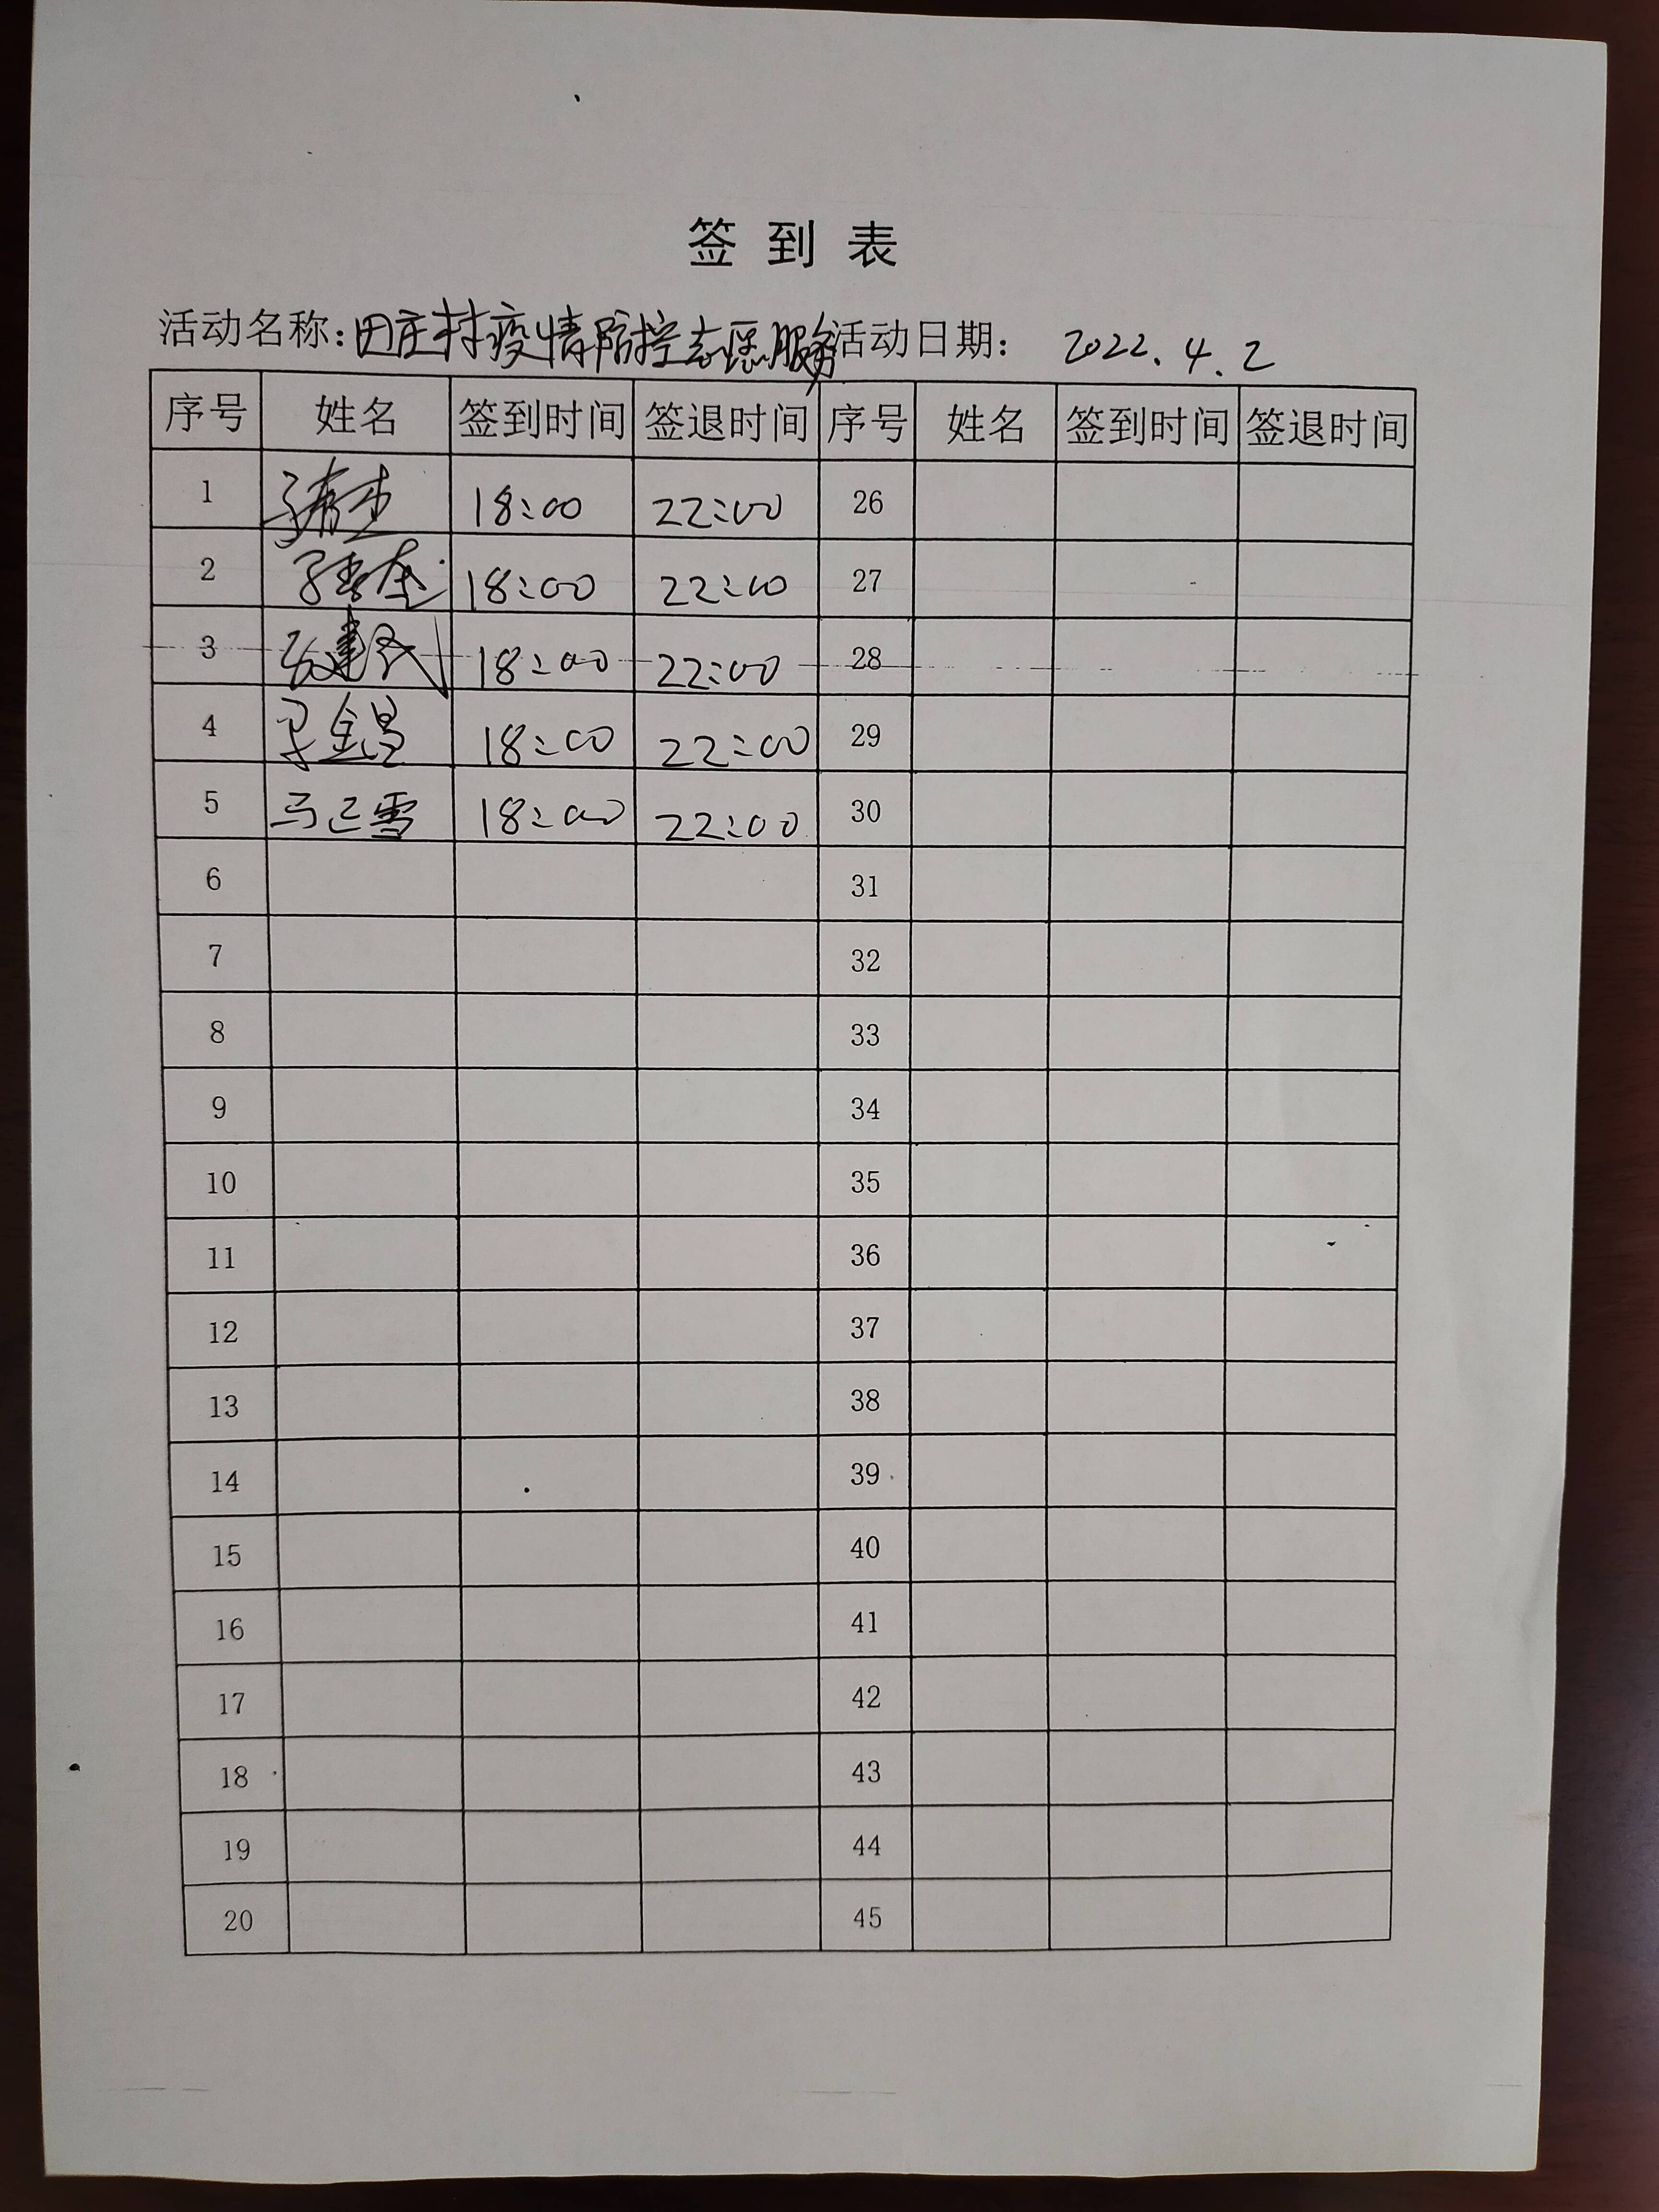 签到表
活动名称：田庄村疫情防控志愿服务 活动日期： 2022.4.2
序号 姓名 签到时间 签退时间 序号 姓名 签到时间 签退时间
1 18:00 22:00 26
2 18:00 22:00 27
3 18:00 22:00 28
4 18:00 22:00 29
5 18:00 22:00 30
6 31
7 32
8 33
9 34
10 35
11 36
12 37
13 38
14 39
15 40
16 41
17 42
18 43
19 44
20 45